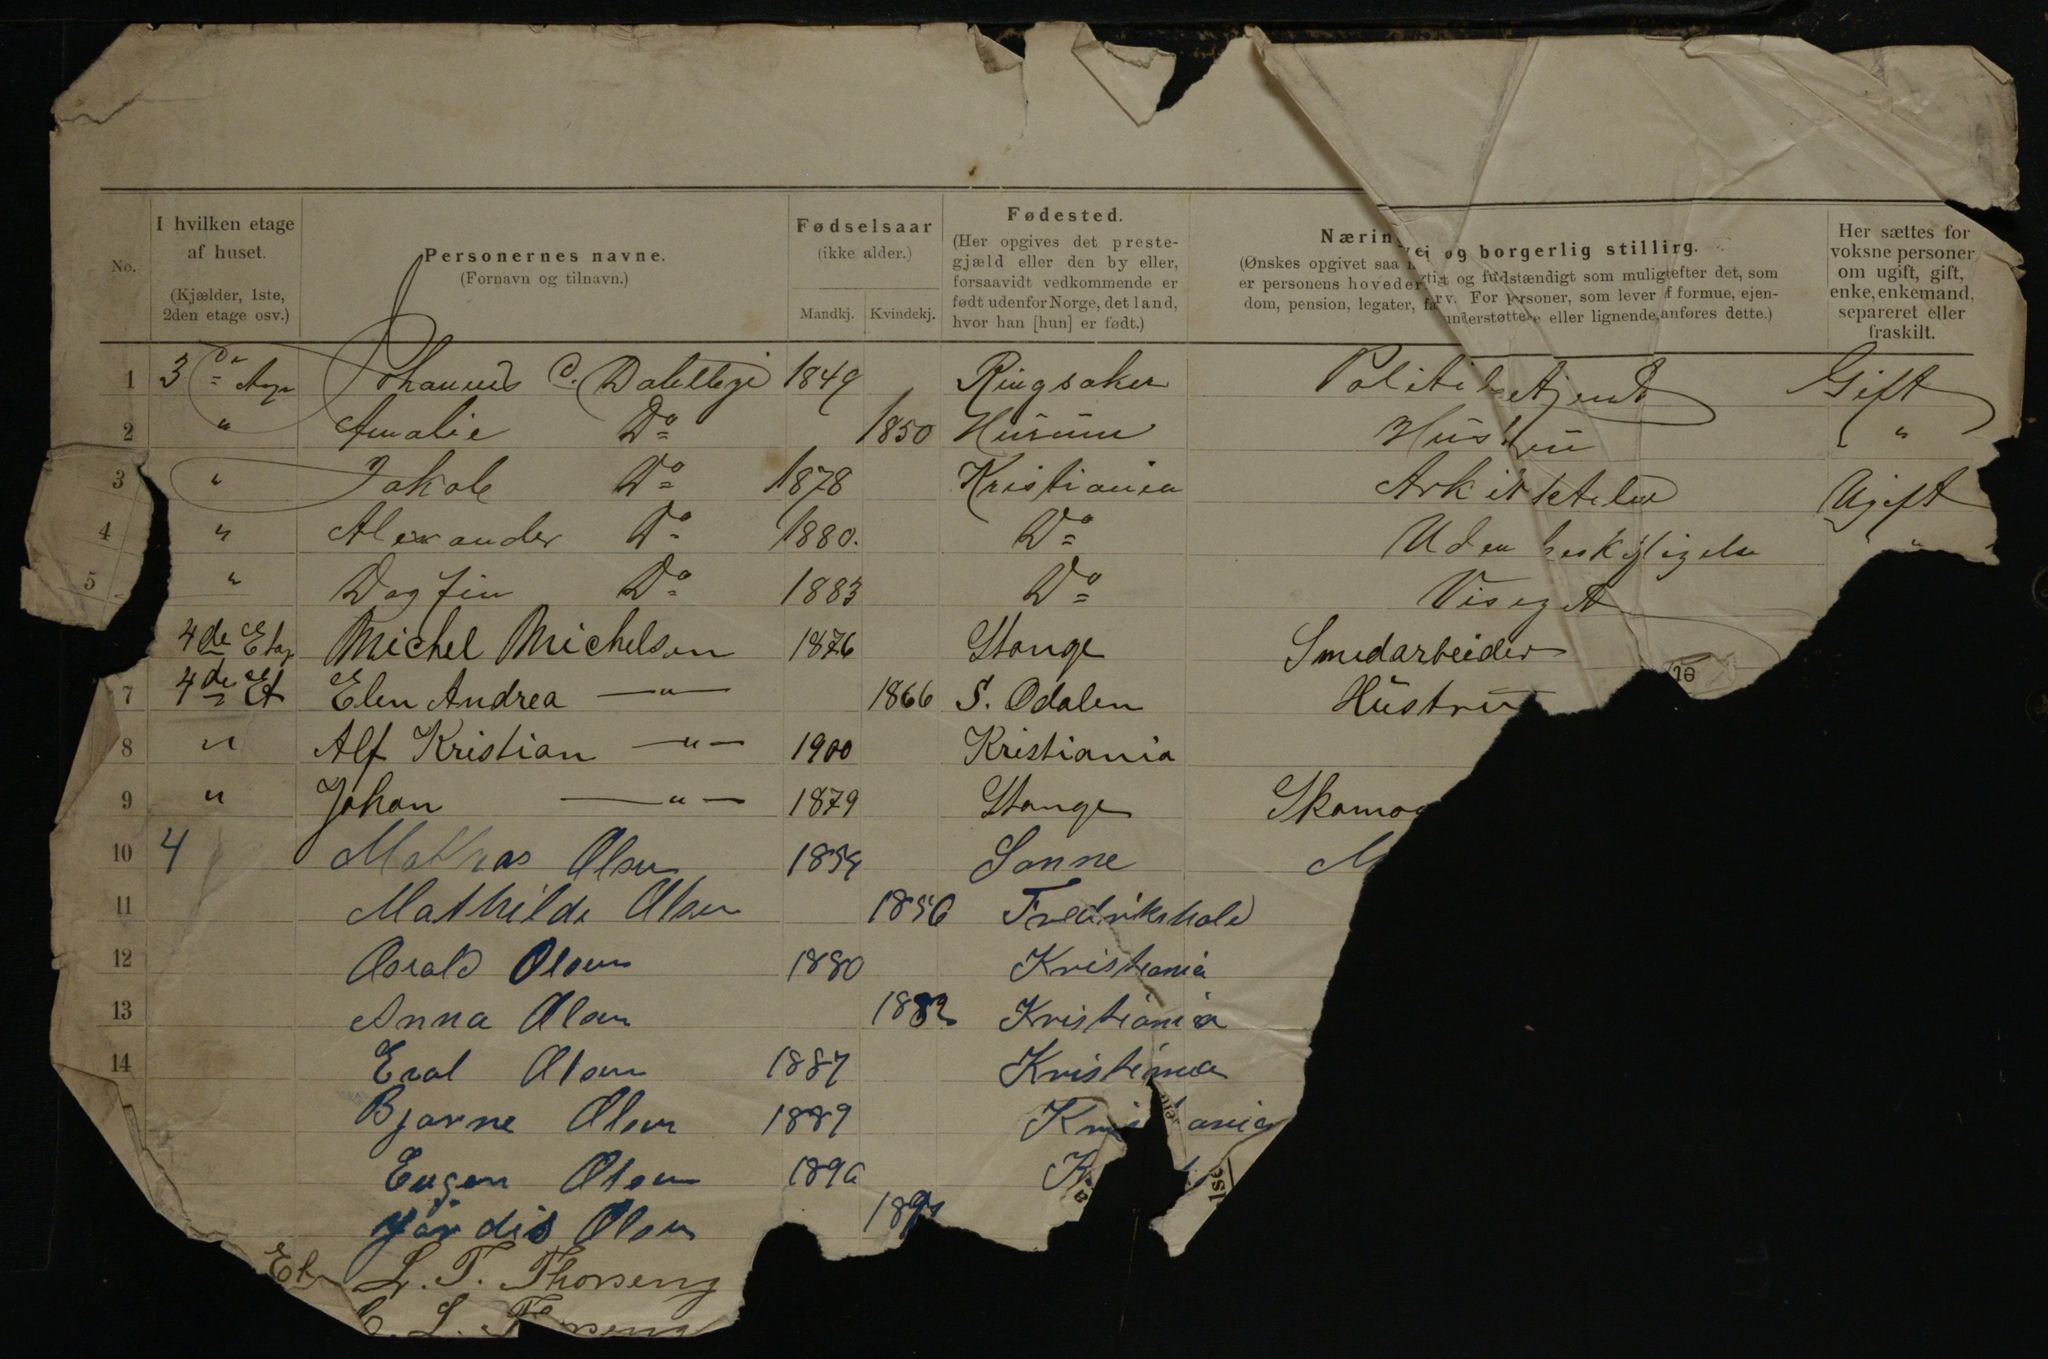 No.
I hvilken etage af huset. (Kjælder, 1ste, 2den etage osv.)
Personernes navne. (Fornavn og tilnavn.)
Fødselsaar (ikke alder.) Mandkj. Kvindekj.
Fødested. (Her opgives det prestegjæld eller den by eller, forsaavidt vedkommende er født udenfor Norge, det land, hvor han [hun] er født.)
Nærin vei og borgerlig stilling. (Ønskes opgivet saa tigt og fuldstændigt som muligt efter det, som er personens hoved erv. For personer, som lever f formue, ejendom, pension, legater, understøttelse eller lignende, anføres dette.)
Her sættes for voksne personer om ugift, gift, enke, enkemand, separeret eller fraskilt.
1 3 Johannes C. 1849 Ringsaker Politi Gift
2 " Amalie Do 1850 Husum Hus " 
3 " Jakob Do 1878 Kristiania Ugift
4 " Alexander Do 1880. Do Uden beskjeftigelse "
5 " Dagfin Do 1883 Do
4de Etag Michel Michelsen 1876 Stange Smedarbeider
7 4de Et Elen Andrea —"— 1866 S. Odalen Hustru
8 " Alf Kristian —"— 1900 Kristiania
9 " Johan —"— 1879 Stange Skomag
10 4 Mathias Olsen Sanne M
11 Mathilde Olsen 1856 Fredrikshald
12 Osvald Olsen 1880 Kristiania
13 Anna Olsen 1882 Kristiania
14 Olsen 1887 Kristiania
Bjarne Olsen 1889 Kris ania
Eugen Olsen K
Olsen
Et L. T. Thorseng